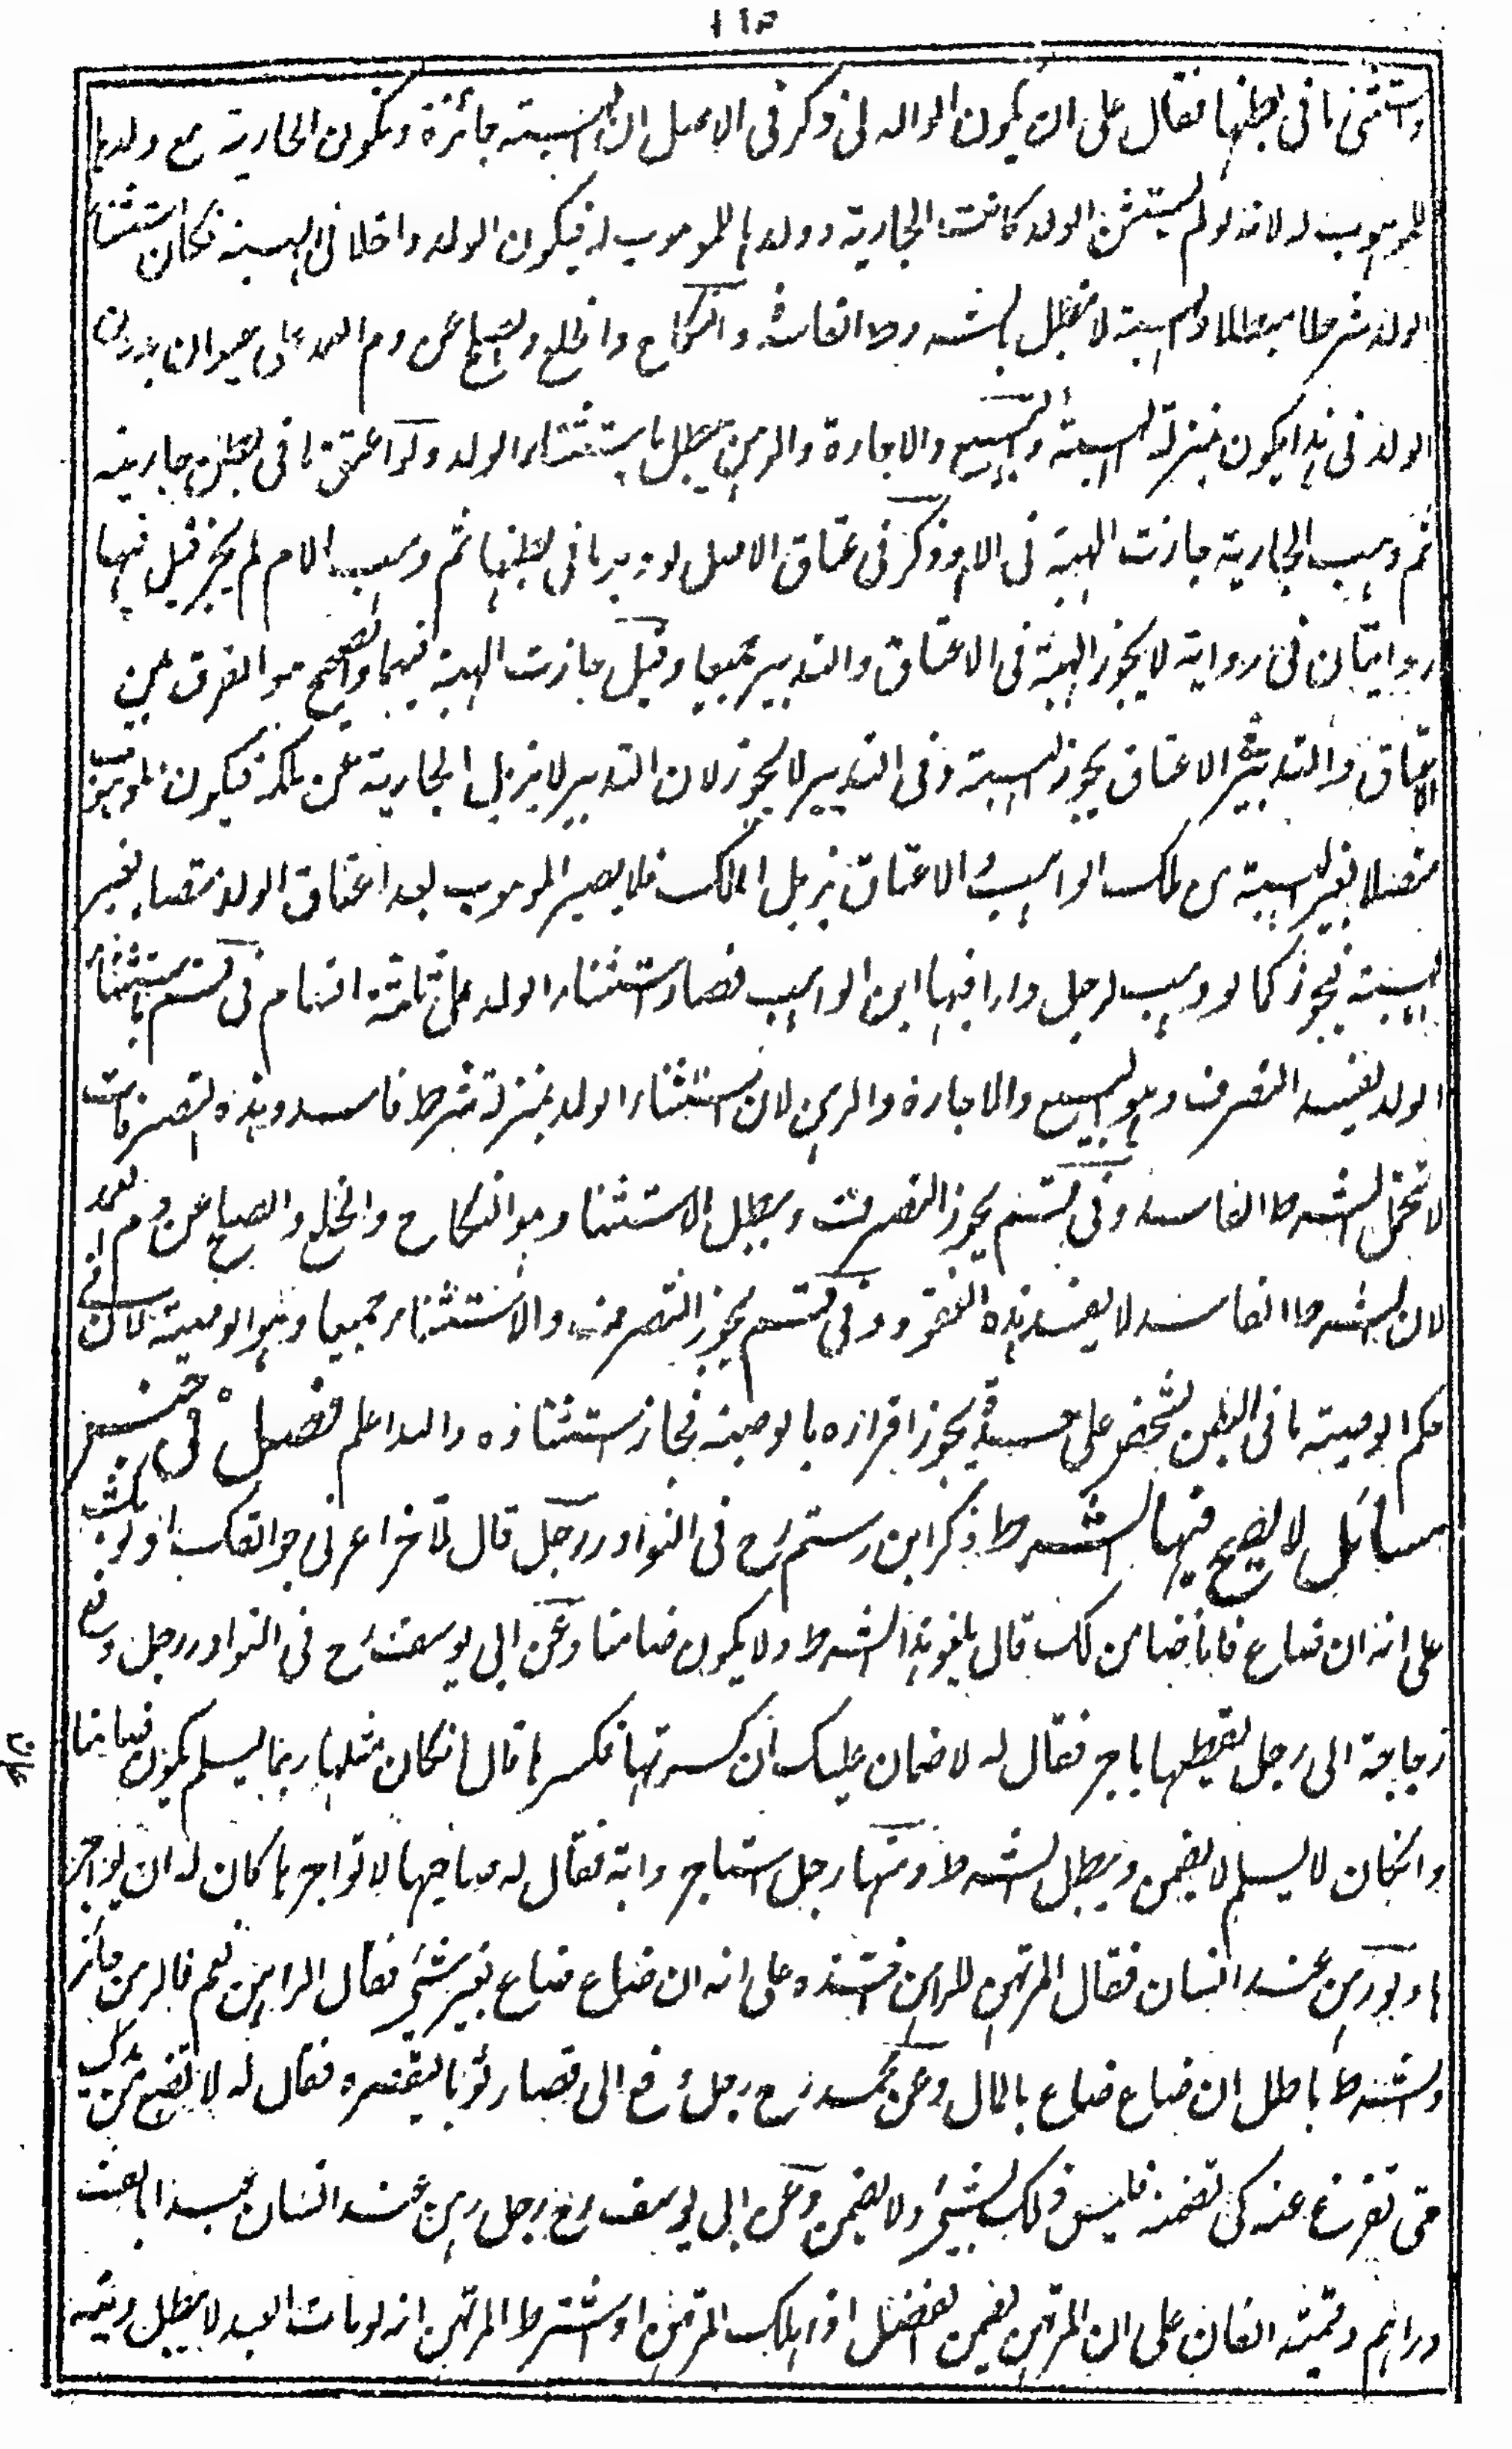 واستثنى ما فى بطنها فقال على ان يكون الولد لى ذكر فى الاصل ان الهبة جائزة وتكون الجارية مع ولدها
للموهوب له لانه لو لم يستثن الولد كانت الجارية وولدها للموهوب له فيكون الولد داخلا فى الهبة فكان استثناء
الولد شرطا مبطلا والهبة لا تبطل بالشروط الفاسدة والنكاح والخلع والصلح عن دم العمد على حيوان بدون
الولد فى هذا يكون بمنزلة الهبة والبيع والاجارة والرهن يبطل باستثناء الولد ولو اعتق ما فى بطن جاريته
ثم وهب الجارية جازت الهبة فى الام وذكر فى عتاق الاصل لو دبر ما فى بطنها ثم وهب الام لم يجز قيل فيها
روايتان فى رواية لا يجوز الهبة فى الاعتاق والتدبير جميعا وقيل جازت الهبة فيهما والصحيح هو الفرق بين
الاعتاق والتدبير فى الاعتاق يجوز الهبة وفى التدبير لا يجوز لان التدبير لا يزيل الجارية عن ملكه فيكون الموهوب
متصلا بغير الهبة من ملك الواهب والاعتاق يزيل الملك فلا يصير الموهوب بعد اعتاق الولد متصلا بغير
الهبة فيجوز كما لو وهب لرجل دارا فيها ابن الواهب فصار استثناء الولد على ثلثة اقسام فى قسم باستثناء
الولد يفسد التصرف وهو البيع والاجارة والرهن لان استثناء الولد بمنزلة شرط فاسد وهذه التصرفات
لا تحتمل الشرط الفاسد وفى قسم يجوز التصرف ويبطل الاستثناء وهو النكاح والخلع والصلح عن دم العمد
لان الشرط الفاسد لا يفسد هذه العقود وفى قسم يجوز التصرف والاستثناء جميعا وهو الوصية لان فى
حكم الوصية ما فى البطن كشخص على حدة يجوز افرازه بالوصية فجاز استثناؤه والله اعلم فصل فى جنس
مسائل لا يصح فيها الشرط ذكر ابن رستم رح فى النوادر رجل قال لآخر اعرنى جوالقك او ثوبك
على انه ان ضاع فانا ضامن لك قال يلغو هذا الشرط ولا يكون ضامنا وعن ابى يوسف رح فى النوادر رجل دفع
زجاجة الى رجل يقطعها باجر فقال له لا ضمان عليك ان كسرتها فكسرها قال انكان مثلها ربما يسلم يكون ضامنا
وانكان لا يسلم لا يضمن ويبطل الشرط ومنها رجل استاجر دابة فقال له صاحبها لا تواجرها كان له ان يؤاجر
ها ولو رهن عند انسان فقال المرتهن للراهن خذه على انه ان ضاع ضاع بغير شئ فقال الراهن نعم فالرهن جائز
والشرط باطل ان ضاع ضاع بالمال وعن محمد رح رجل دفع الى قصار ثوبا ليقصره فقال له لا تضع من يدك
حتى تفرغ عنه كى تضمنه فليس ذلك بشئ ولا يضمن وعن ابى يوسف رح رجل رهن عند انسان عبدا بالف
دراهم وقيمته الفان على ان المرتهن يضمن الفضل اذا هلك الرهن او شرط المرتهن انه لو مات العبد لا يبطل دينه